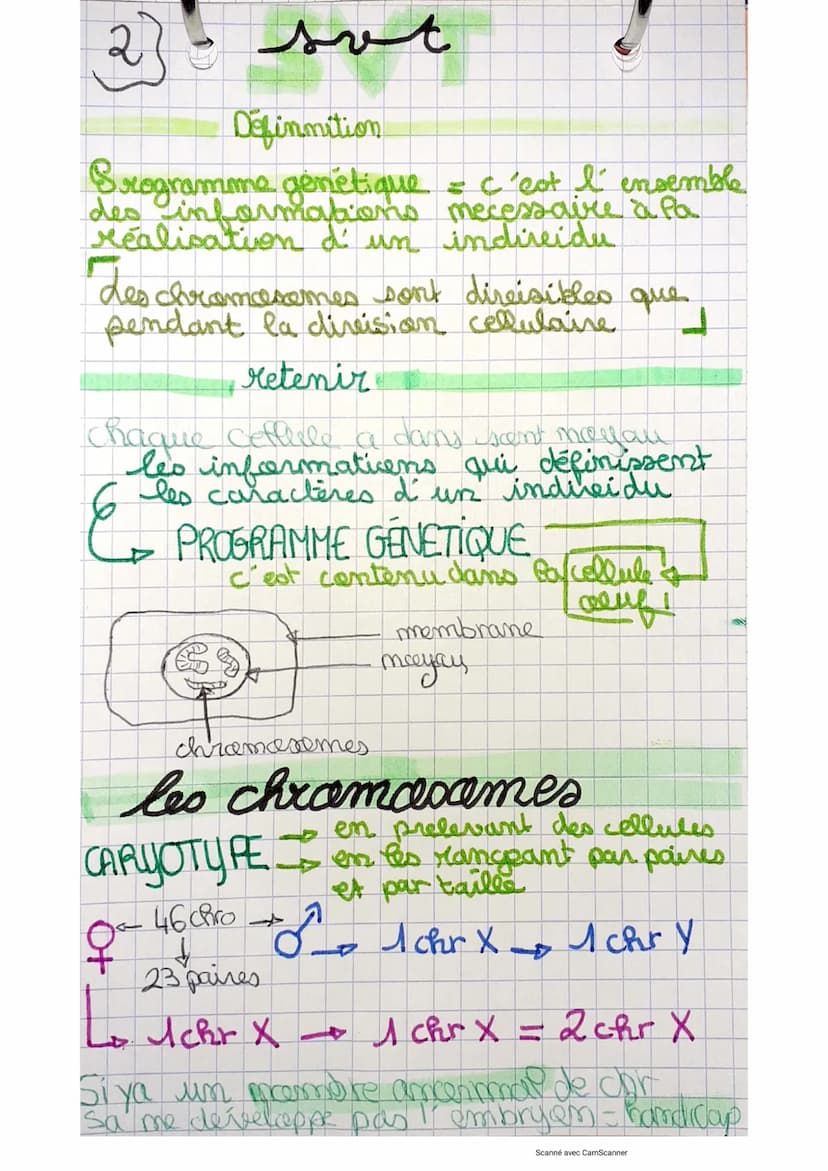 2)
svt
SVT
Définmition
Programme génétique = c'est l'ensemble
des informations necessaire à la
réalisation d'un individu
des chromosomes sont divisibles que
pendant la division cellulaire
retenir
chaque cellule a dans sont noyau
les informations qui définissent
les caractères d'un individu
PROGRAMME GÉNÉTIQUE
c'est contenu dans la cellule
oeuf !
membrane
noyau
chromosomes
les chromosomes
CARYOTYPE → en prelevant des cellules
→ en les rangeant par paires
et par taille
♀ ← 46 chro → ♂ → 1 chr X → 1 chr Y
↓
23 paires
↳ 1 chr X → 1 chr X = 2 chr X
Si ya un nombre anormal de chr
Sa ne développe pas l'embryon = handicap
Scanné avec CamScanner